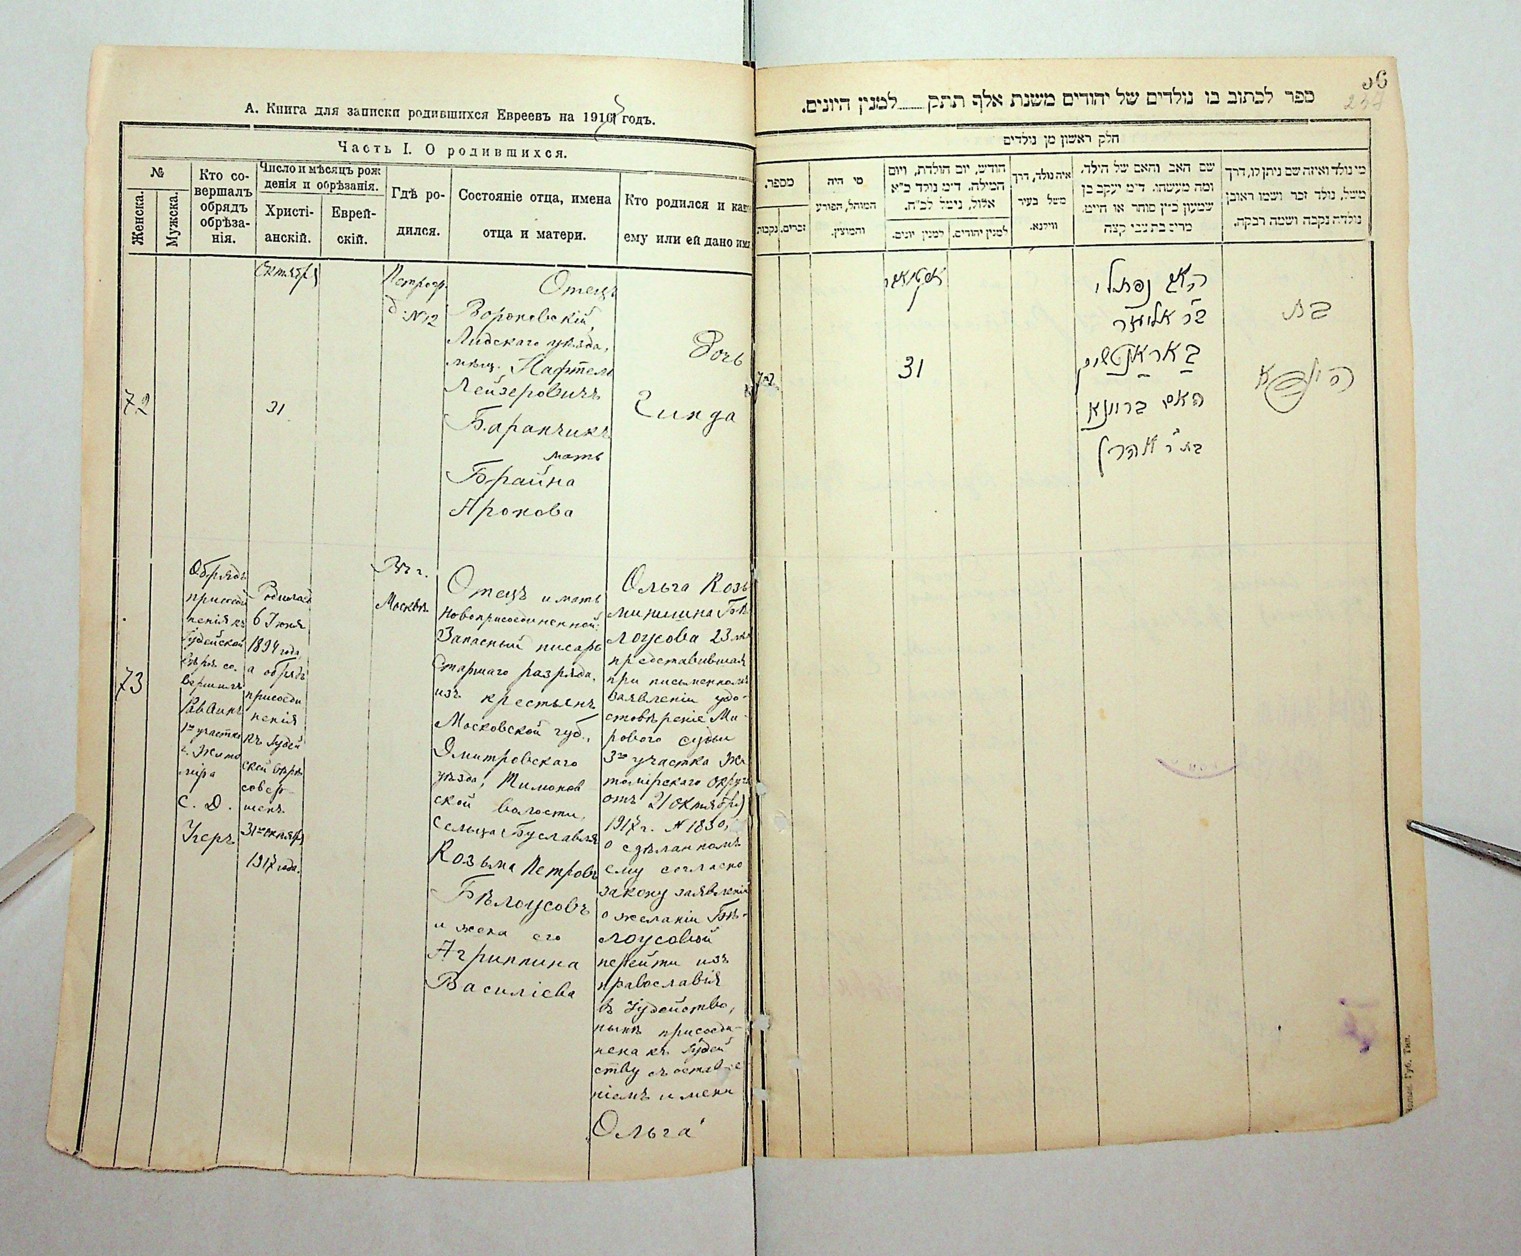 А. Книга для записки родившихся Евреевъ на 1917 годъ.
Часть I. О родившихся.
№
Женска.
Мужска.
Кто со-
вершалъ
обрядъ
обрѣза-
нія.
Число и мѣсяцъ рож
денія и обрѣзанія.
Христі-
анскій.
Еврей-
скій.
Гдѣ ро-
дился.
Состояніе отца, имена
отца и матери.
Кто родился и как
ему или ей дано им
72
Октября
31
Петрогр.
д. №12
Отецъ
Вороновскій
Лидскаго уѣзда,
мѣщ. Нафтель
Лейзеровичъ
Баранчикъ
мать
Брайна
Аронова
Дочь
Гинда
73
Обрядъ
присоеди
ненія къ
Іудейской
вѣрѣ со-
вершилъ
Раввинъ
1го участка
г. Жито
міра
С. Д.
Угеръ
Родилась
6 Іюня
1894 года,
а обрядъ
присоеди
ненія
къ Іудей
ской вѣрѣ
совер-
шенъ
31го октября
1917 года.
Въ г.
Москвѣ
Отецъ и мать
новоприсоединенной:
Запасный писарь
старшаго разряда,
изъ крестьянъ
Московской губ.,
Дмитровскаго
уѣзда, Тимонов
ской волости,
сельца Буславля
Козьма Петровъ
Бѣлоусовъ
и жена его
Агриппина
Василіева
Ольга Козь
минишна Бѣ
лоусова 23 лѣтъ
представившая
при письменномъ
заявленіи удо-
стовѣреніе Ми-
рового судьи
3го участка Жи
томірскаго округа
отъ 21 октября
1917 г. № 1830,
о сдѣланномъ
ему согласно
закону заявленіи
о желаніи Бѣ-
лоусовой
перейти изъ
православія
въ Іудейство,
нынѣ присоеди-
нена къ Іудей
ству съ оставле
ніемъ имени
„Ольга"
36
234
ספר לכתוב בו נולדים של יהודים משנת אלף תתק למנין היונים.
חלק ראשון מן נולדים
מספר.
נקבות
זכרים.
מי היה
המוהל, הפורע
והמוצץ.
חודש, יום הולדת, ויום
המילה. ד״מ נולד כ״א
אלול, נימל לכ״ח.
למנין יונים.
למנין יהודים.
איה נולד, דרך
משל בעיר
ווילנא.
שם האב והאם של הילד.
ומה מעשהו. ד״מ יעקב בן
שמעון כ״ץ סוחר או חייט.
מרים בת צבי קצה
מי נולד ואיזה שם ניתן לו, דרך
משל, נולד זכר ושמו ראובן
נולדה נקבה ושמה רבקה.
72
אקטיאבר
31
האב נפתלי
ב״ר אליעזר
באראנטשיק
האם בריינא
בת ר׳ אהרן
בת
הינדא
Губ. Тип.